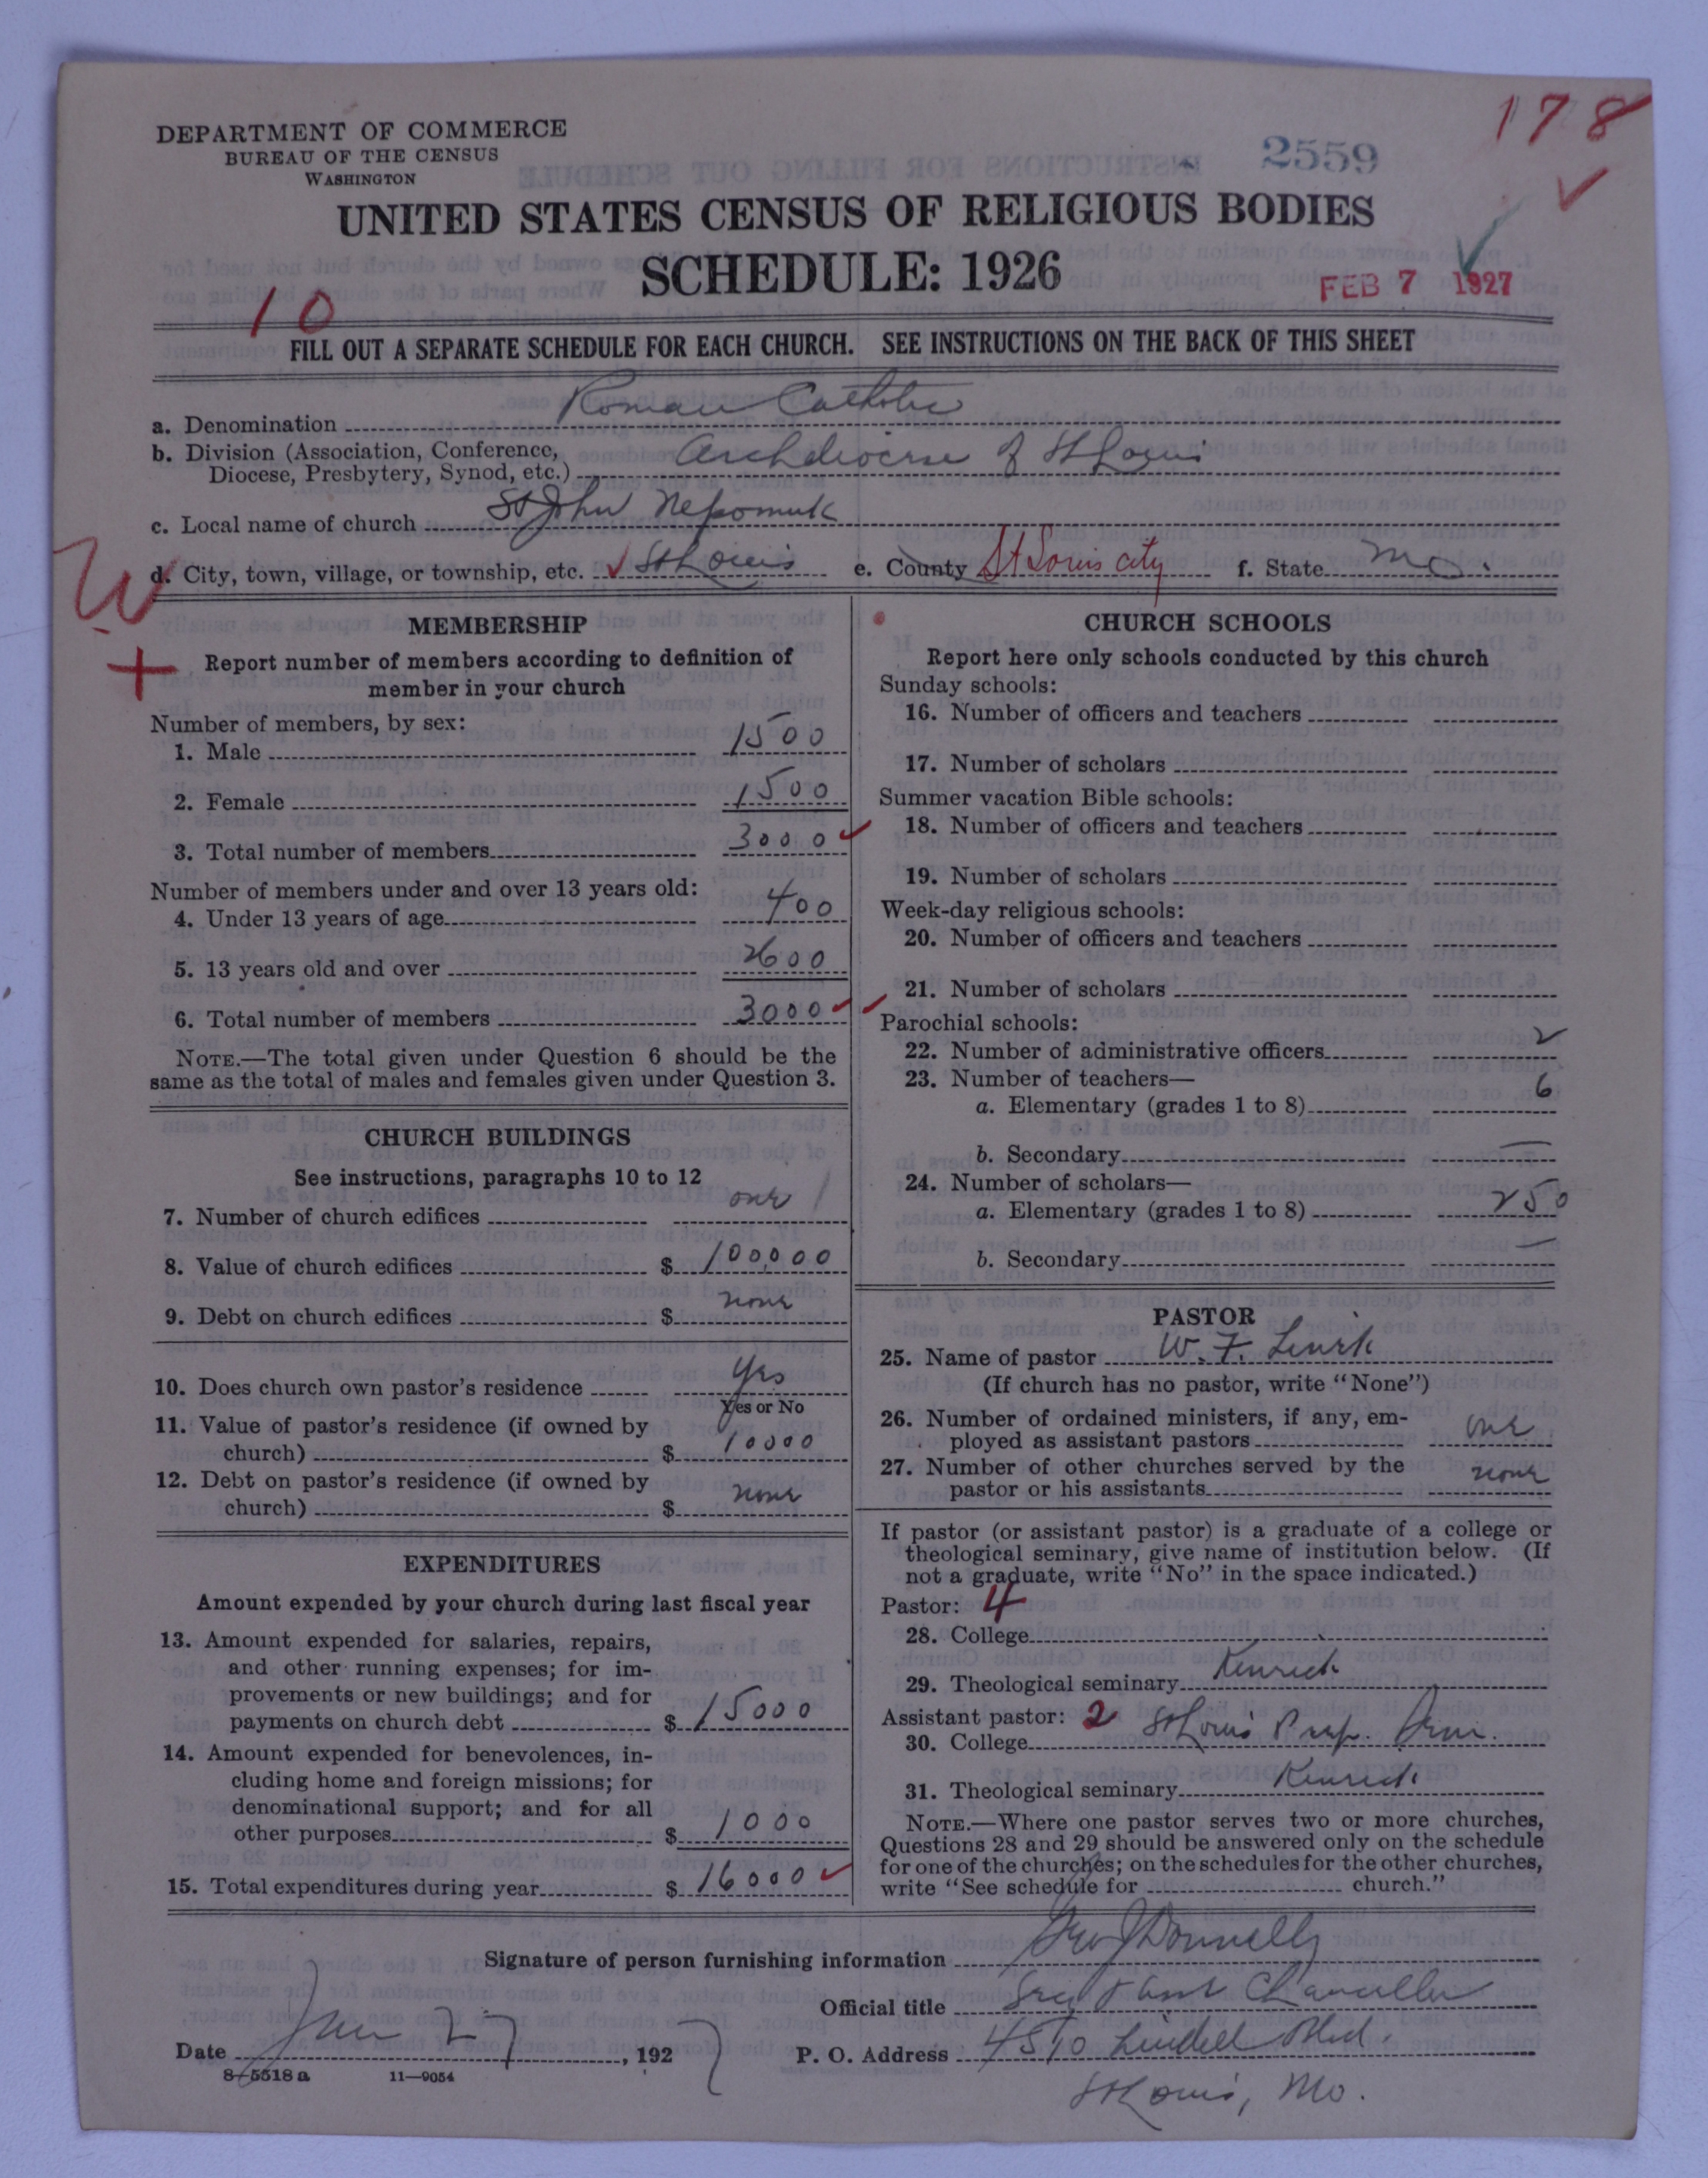 178
DEPARTMENT OF COMMERCE
BUREAU OF THE CENSUS
WASHINGTON
2559
UNITED STATES CENSUS OF RELIGIOUS BODIES
SCHEDULE: 1926
FEB 7 1927
10
FILL OUT A SEPARATE SCHEDULE FOR EACH CHURCH. SEE INSTRUCTIONS ON THE BACK OF THIS SHEET
a. Denomination Roman Catholic
b. Division (Association, Conference,
Diocese, Presbytery, Synod, etc.) Archdiocese of St Louis
c. Local name of church St John Nepomuk
d. City, town, village, or township, etc. St Louis e. County St Louis city f. State Mo.
W
MEMBERSHIP
+ Report number of members according to definition of
member in your church
Number of members, by sex:
1. Male 1500
2. Female 1500
3. Total number of members 3000
Number of members under and over 13 years old:
4. Under 13 years of age 400
5. 13 years old and over 2600
6. Total number of members 3000
NOTE.—The total given under Question 6 should be the
same as the total of males and females given under Question 3.
CHURCH BUILDINGS
See instructions, paragraphs 10 to 12
7. Number of church edifices one 1
8. Value of church edifices $ 100,000
9. Debt on church edifices $ none
10. Does church own pastor's residence Yes
Yes or No
11. Value of pastor's residence (if owned by
church) $ 10000
12. Debt on pastor's residence (if owned by
church) $ none
EXPENDITURES
Amount expended by your church during last fiscal year
13. Amount expended for salaries, repairs,
and other running expenses; for im-
provements or new buildings; and for
payments on church debt $ 15000
14. Amount expended for benevolences, in-
cluding home and foreign missions; for
denominational support; and for all
other purposes $ 1000
15. Total expenditures during year $ 16000
CHURCH SCHOOLS
Report here only schools conducted by this church
Sunday schools:
16. Number of officers and teachers
17. Number of scholars
Summer vacation Bible schools:
18. Number of officers and teachers
19. Number of scholars
Week-day religious schools:
20. Number of officers and teachers
21. Number of scholars
Parochial schools:
22. Number of administrative officers 2
23. Number of teachers—
a. Elementary (grades 1 to 8) 6
b. Secondary —
24. Number of scholars—
a. Elementary (grades 1 to 8) 250
b. Secondary —
PASTOR
25. Name of pastor W. F.
(If church has no pastor, write "None")
26. Number of ordained ministers, if any, em-
ployed as assistant pastors one
27. Number of other churches served by the
pastor or his assistants none
If pastor (or assistant pastor) is a graduate of a college or
theological seminary, give name of institution below. (If
not a graduate, write "No" in the space indicated.)
Pastor: 4
28. College
29. Theological seminary Kenrick
Assistant pastor: 2
30. College St Louis Prep. Sem.
31. Theological seminary Kenrick
NOTE.—Where one pastor serves two or more churches,
Questions 28 and 29 should be answered only on the schedule
for one of the churches; on the schedules for the other churches,
write "See schedule for church."
Signature of person furnishing information Geo J Donnelly
Official title Secy & Asst Chancellor
Date Jan 27, 1927 P. O. Address 4510 Lindell Blvd.
8—5518a 11—9054
St Louis, Mo.